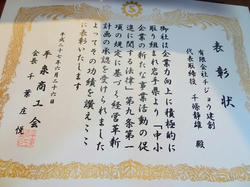 表彰状
有限会社チジョウ建創
代表取締役 千條静雄 殿
御社は企業力向上に積極的に
取り組まれ岩手県より「中小
企業の新たな事業活動の促
進に関する法律」第九条第一
項の規定に基づく経営革新
計画の承認を受けられました
よってその功績を讃えここ
に表彰いたします
平成二十七年六月二十六日
平泉商工会
会長 千葉庄悦